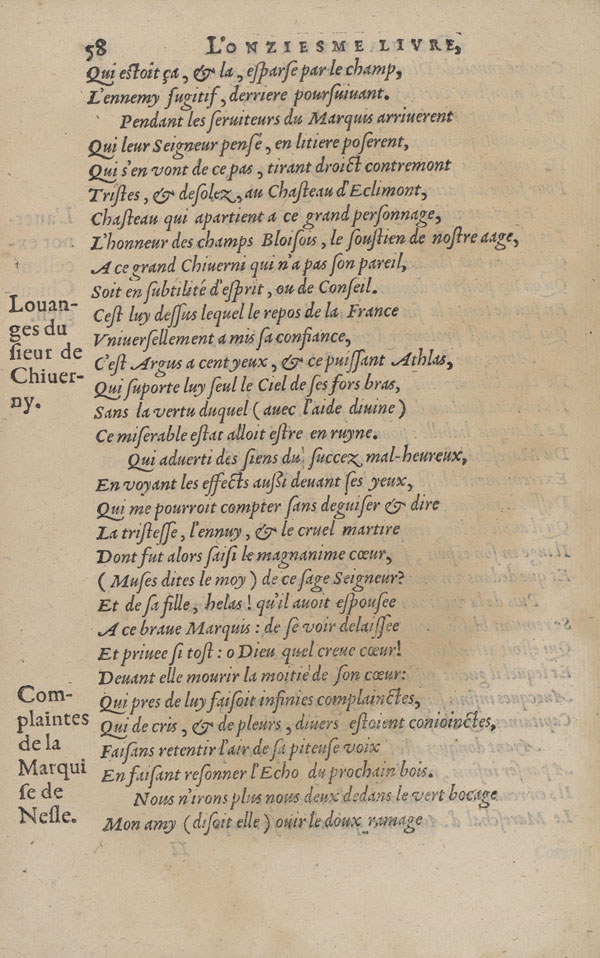 58 L'ONZIESME LIVRE,
Qui estoit ça, & la, esparse par le champ,
L'ennemy fugitif, derriere poursuivant.
Pendant les seruiteurs du Marquis arriuerent
Qui leur Seigneur pensé, en litiere poserent,
Qui s'en vont de ce pas, tirant droict contremont
Tristes, & desolez, au Chasteau d'Eclimont,
Chasteau qui apartient a ce grand personnage,
L'honneur des champs Bloisois, le soustien de nostre aage,
A ce grand Chiuerni qui n'a pas son pareil,
Soit en subtilité d'esprit, ou de Conseil.
Cest luy dessus lequel le repos de la France
Vniuersellement a mis sa confiance,
C'est Argus a cent yeux, & ce puissant Athlas,
Qui suporte luy seul le Ciel de ses fors bras,
Sans la vertu duquel (auec l'aide diuine)
Ce miserable estat alloit estre en ruyne.
Qui aduerti des siens du succez mal-heureux,
En voyant les effects aussi deuant ses yeux,
Qui me pourroit compter sans deguiser & dire
La tristesse, l'ennuy, & le cruel martire
Dont fut alors saisi le magnanime cœur,
(Muses dites le moy) de ce sage Seigneur?
Et de sa fille, helas! qu'il auoit espousee
A ce braue Marquis: de se voir delaissee
Et priuee si tost: o Dieu quel creue cœur!
Deuant elle mourir la moitié de son cœur:
Qui pres de luy faisoit infinies complainctes,
Qui de cris, & de pleurs, diuers estoient conioinctes,
Faisans retentir l'air de sa piteuse voix
En faisant resonner l'Echo du prochain bois.
Nous n'irons plus nous deux dedans le vert bocage
Mon amy (disoit elle) ouir le doux ramage
Louan-
ges du
sieur de
Chiuer-
ny.
Com-
plaintes
de la
Marqui
se de
Nesle.